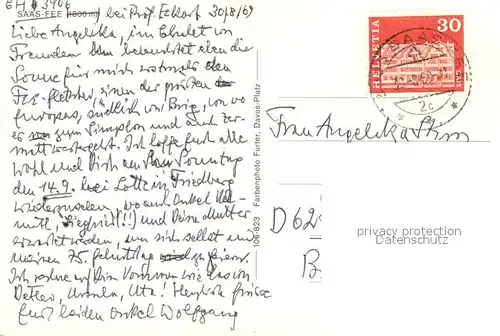 CH 3906
SAAS-FEE (1800 m) bei Prof. Eckart 30/8/69
Liebe Angelika, im Chalet von
Freunden beleuchtet eben die
Sonne für mich erstmals den
Fee-gletscher, einen der größten
Europas, südlich von Brig, von wo
er zum Simplon und auch Zer-
matt weitergeht. Ich hoffe euch alle
wohl und Dich am Sonntag
den 14.9. bei Lotte in Friedberg
wiederzusehen, wo auch Onkel Hel-
mut, (Siegfried!!) und Deine Mutter
erwartet werden, um sich selbst und
meinen 75. Geburtstag zu feiern.
Ich rechne auf Dein Kommen wie das von
Detlev, Ursula, Uta! Herzliche Grüße
Euch beiden Onkel Wolfgang
106-823 Farbenphoto Furter, Davos-Platz
HELVETIA
30
GAIS
2c
Frau Angelika
D 62
B
privacy protection
Datenschutz